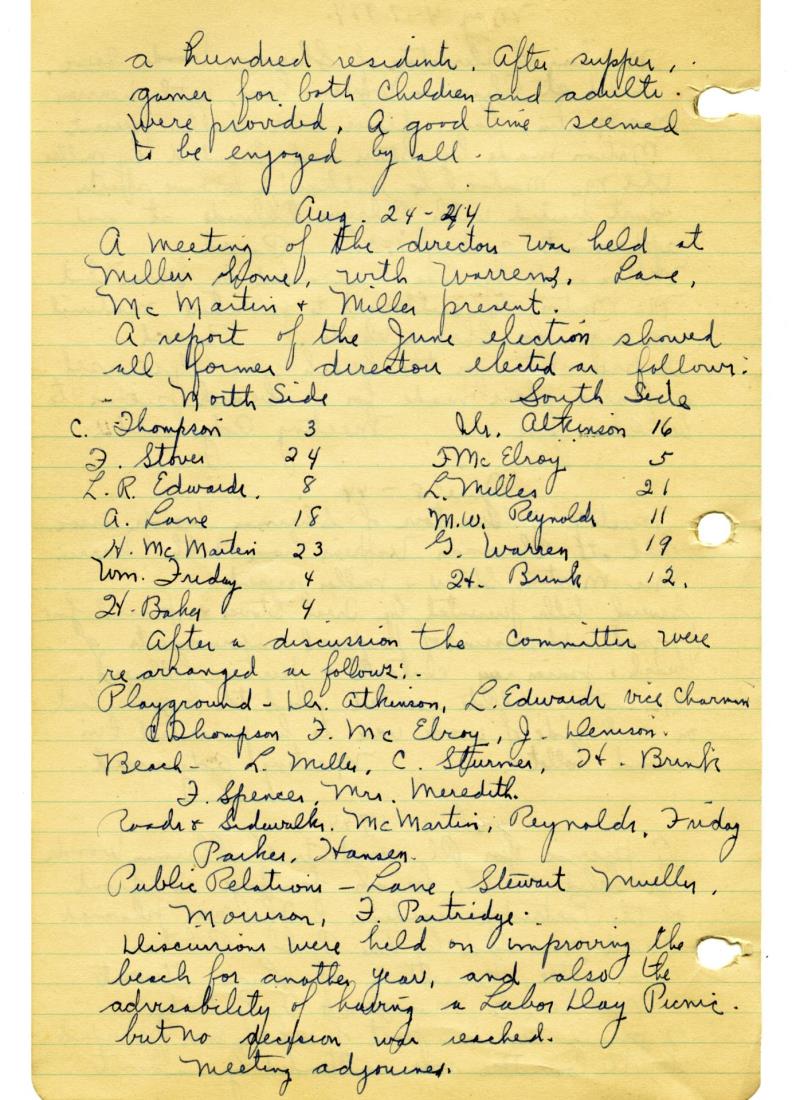 a hundred residents. After supper,
games for both children and adults.
were provided. A good time seemed
to be enjoyed by all.
Aug. 24-44
A meeting of the directors was held at
Millers home, with Warrens, Lane,
McMartin + Miller present.
A report of the June election showed
all former directors elected as follows:
North Side South Side
C. Thompson 3 Dr. Atkinson 16
F. Stover 24 F McElroy 5
L. R. Edwards. 8 L. Miller 21
A. Lane 18 M.W. Reynolds 11
H. McMartin 23 G. Warren 19
Wm. Friday 4 H. Brink 12.
H. Baker 4
After a discussion the committees were
rearranged as follows:.
Playground - Dr. Atkinson, L. Edwards vice Charmin
C Thompson F. McElroy, J. Denison.
Beach - L. Miller, C. Sturmer, H. Brink
F. Spencer, Mrs. Meredith.
Roads + Sidewalks. McMartin, Reynolds, Friday
Parker, Hansen.
Public Relations - Lane, Stewart Mueller,
Morrison, F. Partridge.
Discussions were held on improving the
beach for another year, and also the
advisability of having a Labor Day Picnic.
but no decision was reached.
Meeting adjourned.